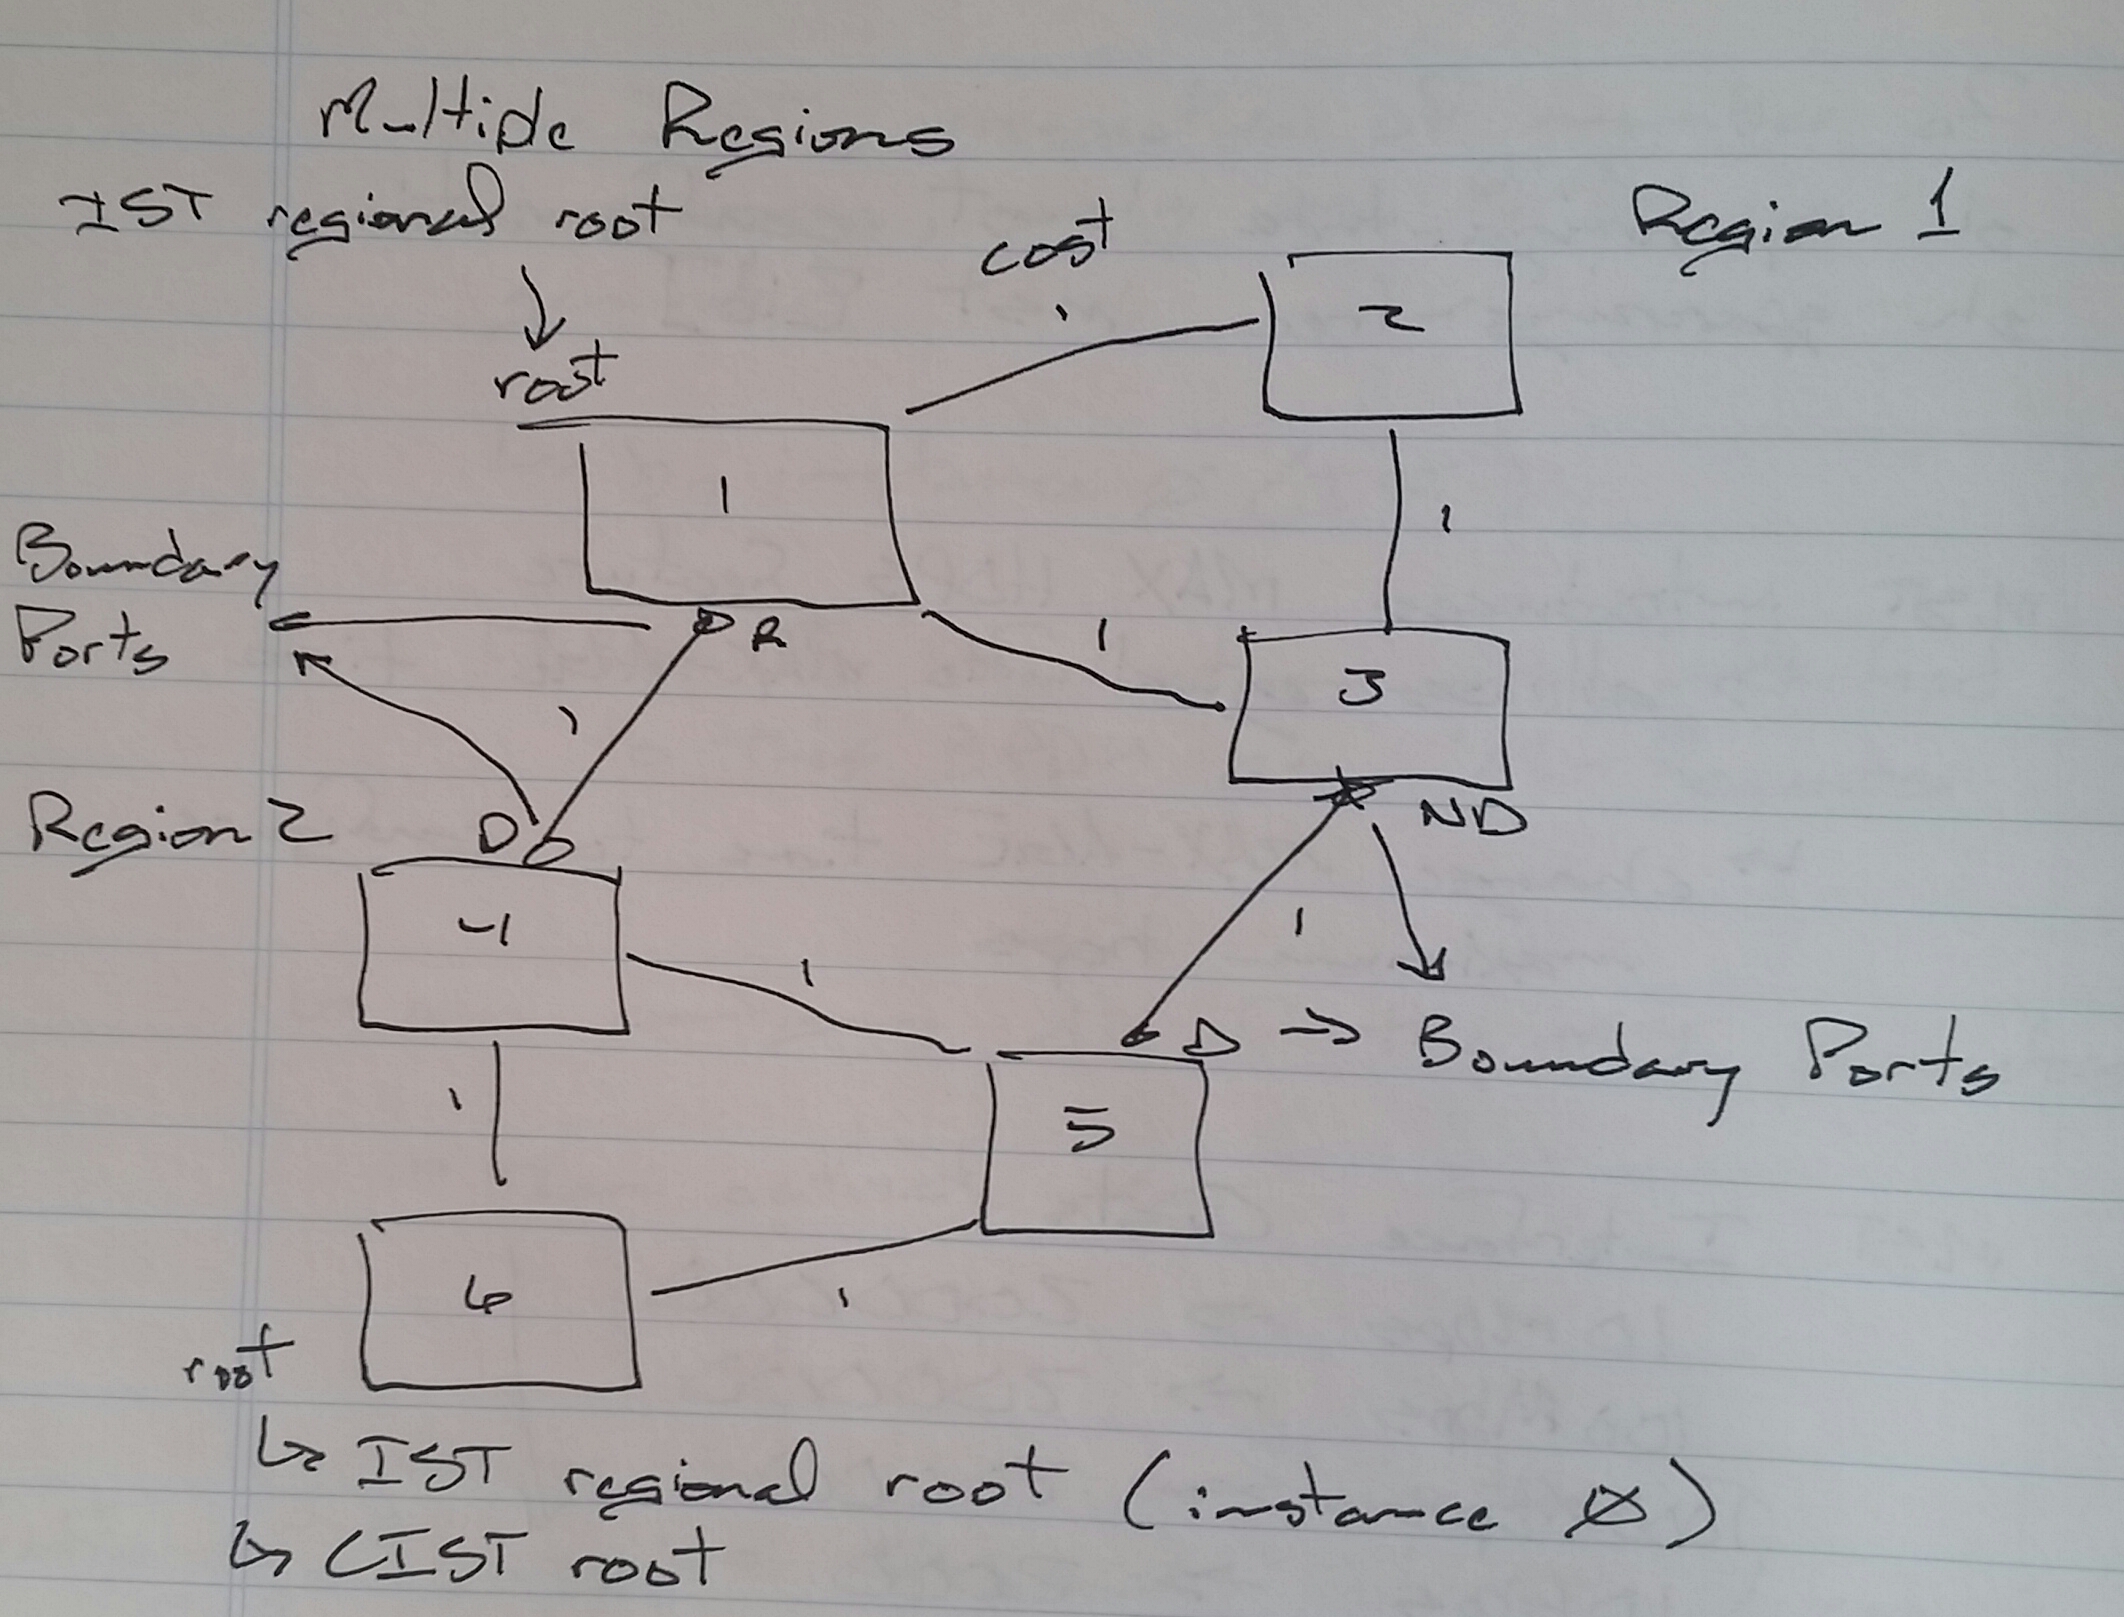 Multiple Regions
IST regional root
Region 1
cost
1
2
root
1
1
Boundary
Ports
R
1
3
1
ND
Region 2
D
4
1
1
D → Boundary Ports
5
1
6
1
root
↳ IST regional root (instance Ø)
↳ CIST root